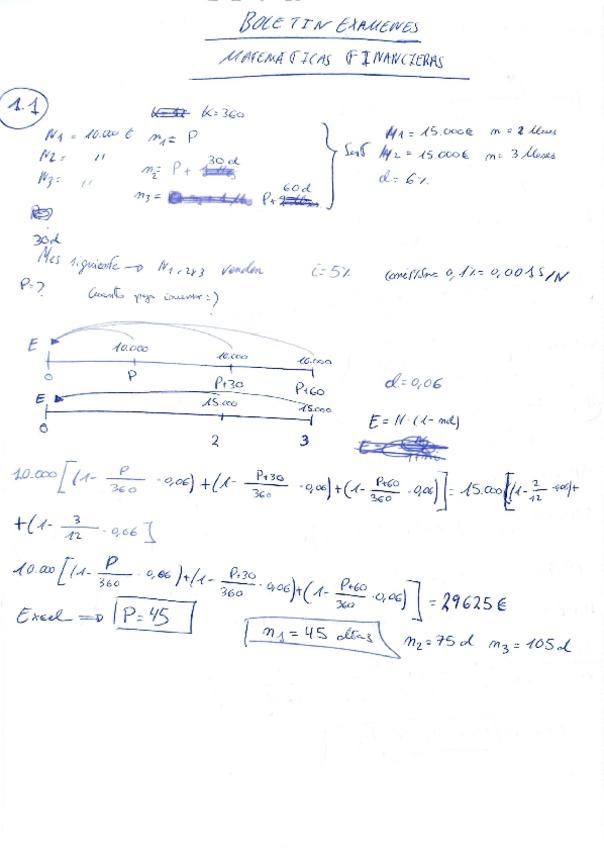 BOLETIN EXAMENES
MATEMATICAS FINANCIERAS
1.1
K=360
N1 = 10.000 € n1 = P
N2 = " n2 = P + 30d
N3 = " n3 = P + 60d
H1 = 15.000€ n = 2 Meses
H2 = 15.000€ n = 3 Meses
d = 6%
30d
Mes siguiente → N1,2 y 3 venden i = 5% comisión 0,1% = 0,001 S/N
P = ? Cuanto paga inversor = ?
E 10.000 10.000 10.000
0 P P+30 P+60
d = 0,06
E 15.000 15.000
0 2 3
E = N · (1 - nd)
10.000 [(1 - P/360 · 0,06) + (1 - P+30/360 · 0,06) + (1 - P+60/360 · 0,06)] = 15.000 [(1 - 2/12 · 0,06) +
+ (1 - 3/12 · 0,06]
10.000 [(1 - P/360 · 0,06) + (1 - P+30/360 · 0,06) + (1 - P+60/360 · 0,06)] = 29625 €
Excel ⇒ P = 45
n1 = 45 días n2 = 75 d n3 = 105 d